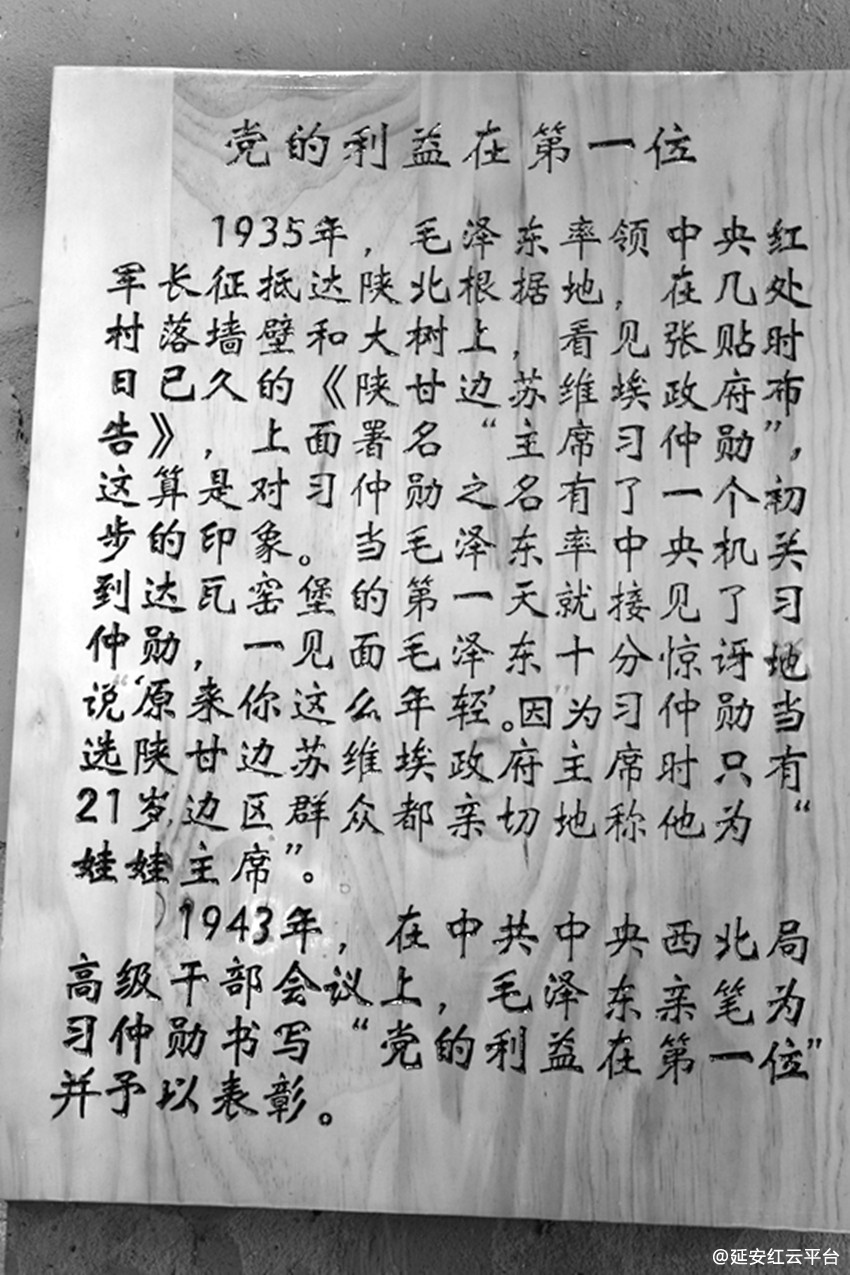 党的利益在第一位
1935年，毛泽东率领中央红
军长征抵达陕北根据地，在几处
村落墙壁和大树上，看见张贴时
日已久的《陕甘边苏维埃政府布
告》，上面署名“主席习仲勋”，
这算是对习仲勋之名有了一个初
步的印象。当毛泽东率中央机关
到达瓦窑堡的第一天就接见了习
仲勋，一见面毛泽东十分惊讶地
说“原来你这么年轻”。因为习仲勋当
选陕甘边苏维埃政府主席时只有
21岁，边区群众都亲切地称他为“
娃娃主席”。
1943年，在中共中央西北局
高级干部会议上，毛泽东亲笔为
习仲勋书写“党的利益在第一位”
并予以表彰。
@延安红云平台